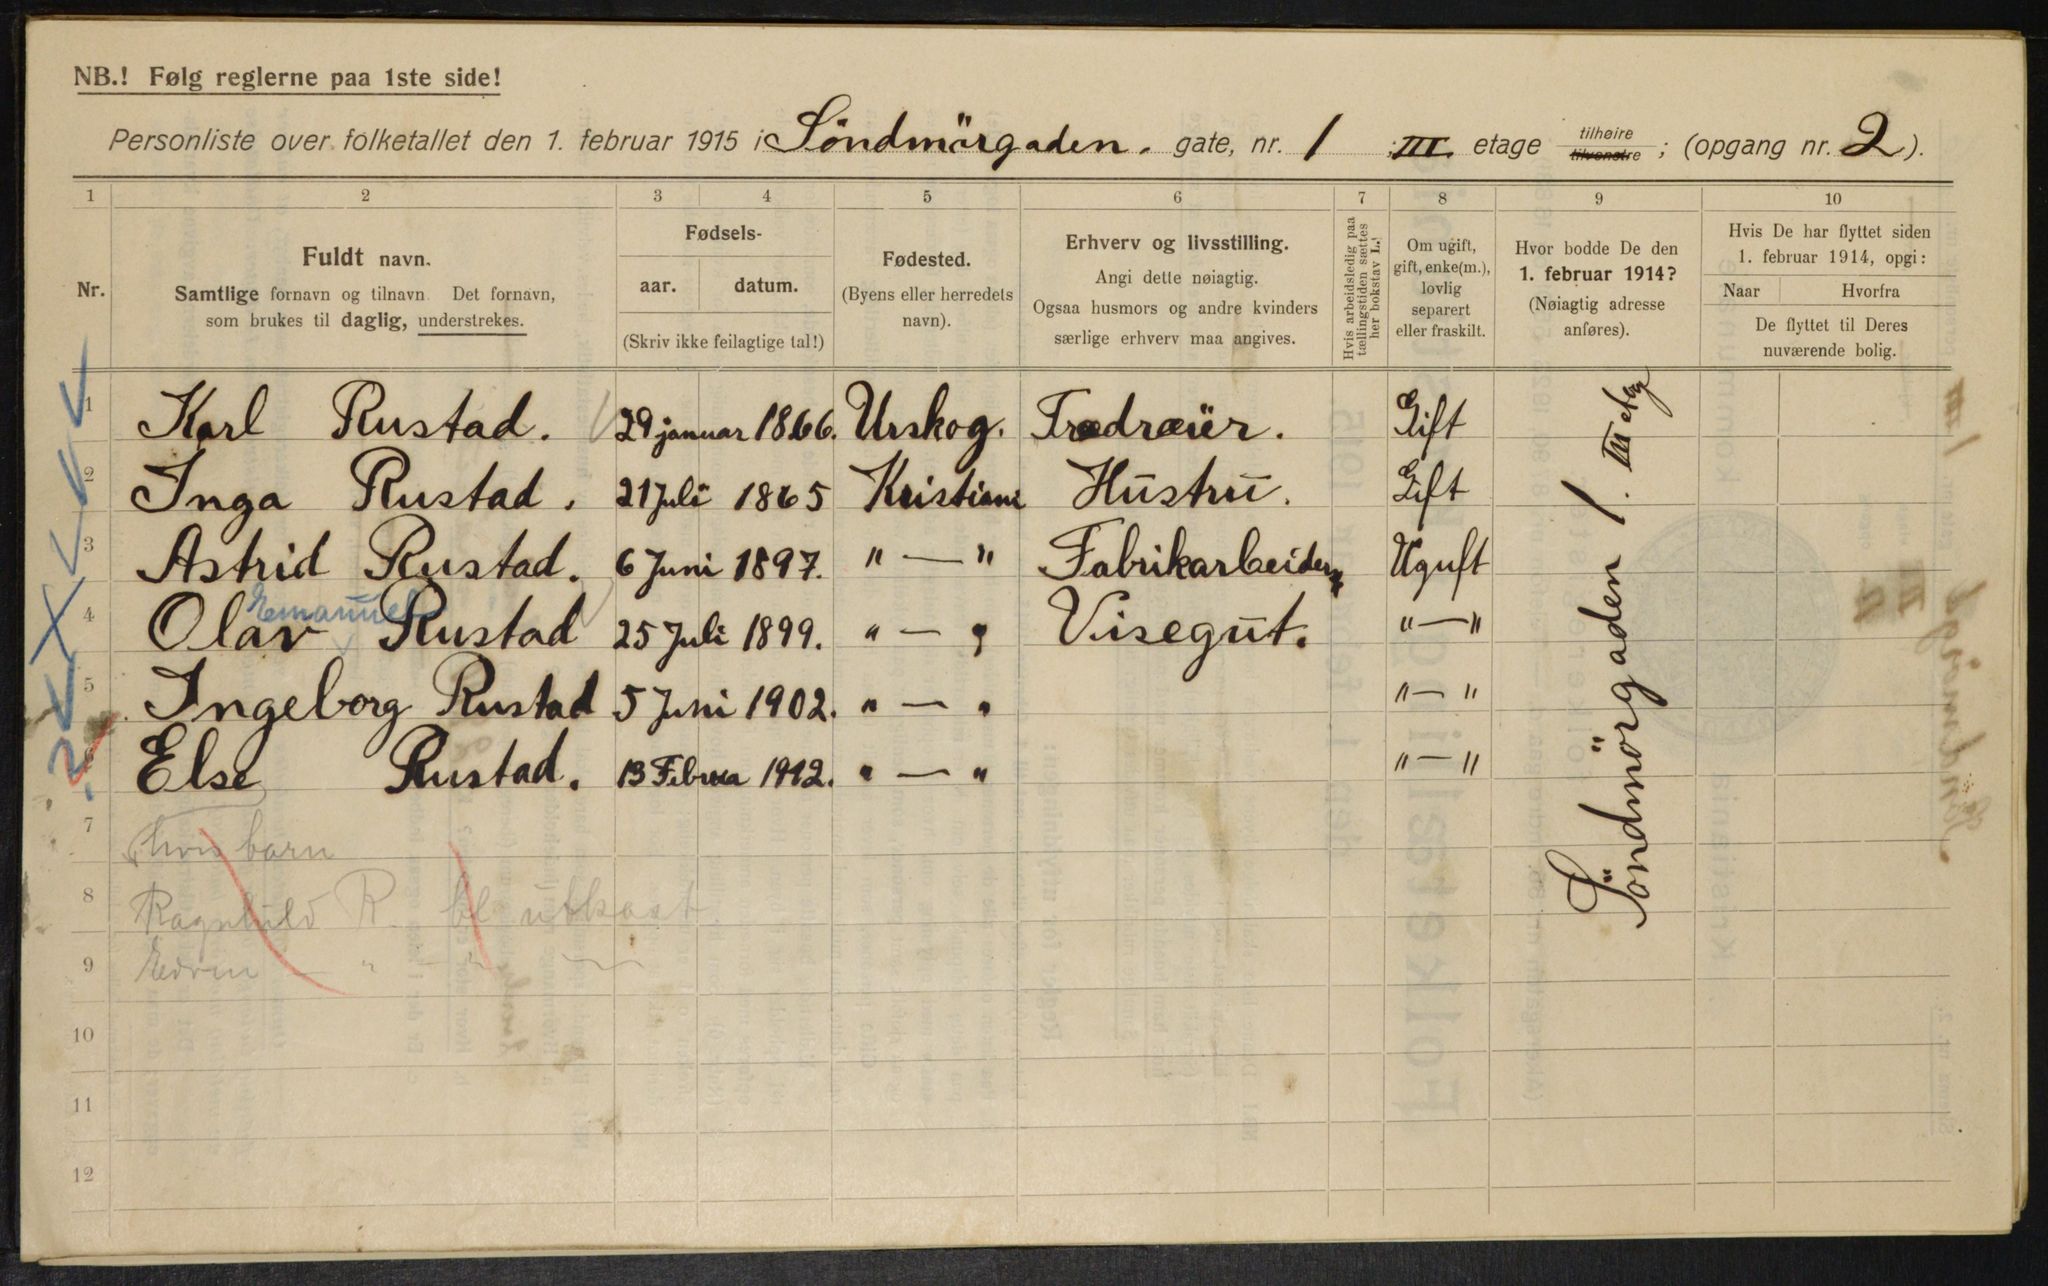 NB.! Følg reglerne paa 1ste side!
Personliste over folketallet den 1. februar 1915 i Söndmörgaden. gate, nr. 1 ; III. etage tilhøire tilvenstre ; (opgang nr. 2 ).
1 2 3 4 5 6 7 8 9 10
Nr.
Fuldt navn.
Samtlige fornavn og tilnavn. Det fornavn,
som brukes til daglig, understrekes.
Fødsels-
aar. datum.
(Skriv ikke feilagtige tal!)
Fødested.
(Byens eller herredets
navn).
Erhverv og livsstilling.
Angi dette nøiagtig.
Ogsaa husmors og andre kvinders
særlige erhverv maa angives.
Hvis arbeidsledig paa
tællingstiden sættes
her bokstav L.
Om ugift,
gift, enke(m.),
lovlig
separert
eller fraskilt.
Hvor bodde De den
1. februar 1914?
(Nøiagtig adresse
anføres).
Hvis De har flyttet siden
1. februar 1914, opgi:
Naar Hvorfra
De flyttet til Deres
nuværende bolig.
1 Karl Rustad. 29 januar 1866. Urskog. Trædræiër. Gift
2 Inga Rustad. 21 Juli 1865 Kristiani Hustru. Gift
3 Astrid Rustad. 6 Juni 1897. " — " Fabrikarbeider Uguft
Emanuel
4 Olav Rustad 25 Juli 1899. " — " Visegut. " — "
5 Ingeborg Rustad 5 Juni 1902. " — " " — "
6 Else Rustad. 13 Februa 1912. " — " " — "
Söndmörgaden 1. III etag
7 hvis barn
8 Ragnhild R. bl utkast
9 Edvin — " — " —
10
11
12